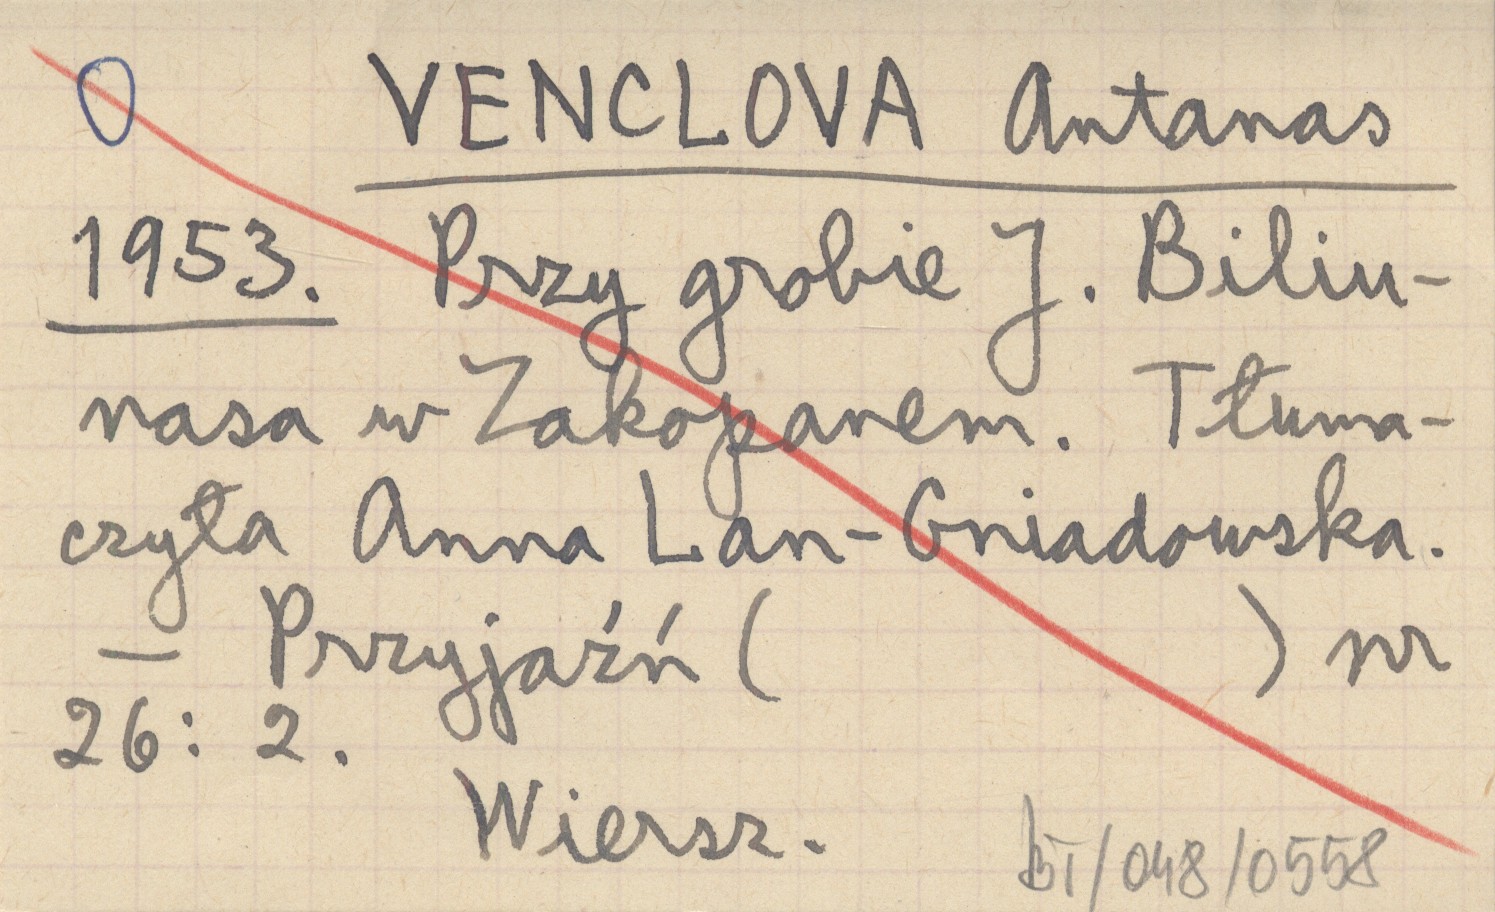 0 VENCLOVA Antanas
1953. Przy grobie J. Biliu-
nasa w Zakopanem. Tłuma-
czyła Anna Lan-Gniadowska.
— Przyjaźń ( ) nr
26: 2.
Wiersz.
BT/048/0558